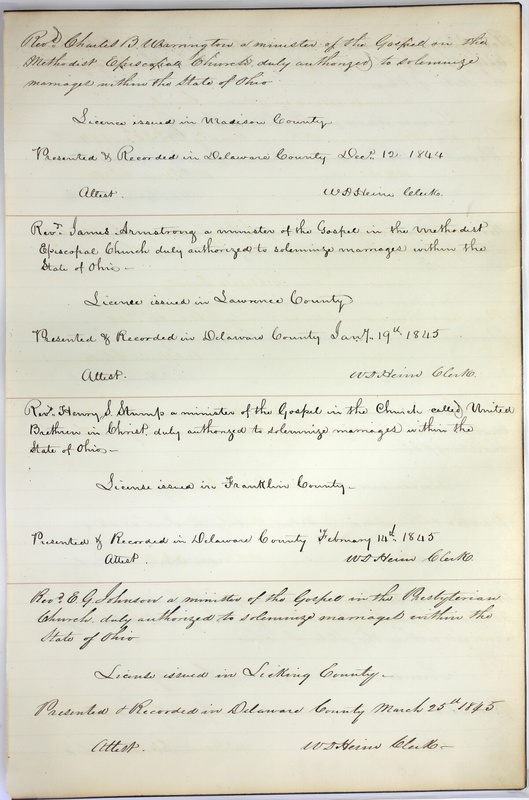 Revd. Charles B. Warrington a minister of the Gospel in the
Methodist Episcopal Church duly authorized to solemnize
marriages within the State of Ohio
Licence issued in Madison County
Presented & Recorded in Delaware County Decr. 12. 1844
Attest. W D Heim Clerk
Revd. James Armstrong a minister of the Gospel in the Methodist
Episcopal Church duly authorized to solemnize marriages within the
State of Ohio —
License issued in Lawrence County
Presented & Recorded in Delaware County Jany. 19th 1845
Attest. W D Heim Clerk
Revd. Henry S. Stump a minister of the Gospel in the Church called United
Brethren in Christ, duly authorized to solemnize marriages within the
State of Ohio —
License issued in Franklin County —
Presented & Recorded in Delaware County February 14th. 1845
Attest. W D Heim Clerk
Revd. E. G. Johnson a minister of the Gospel in the Presbyterian
Church duly authorized to solemnize marriages within the
State of Ohio
License issued in Licking County —
Presented & Recorded in Delaware County March 25th 1845
Attest. W D Heim Clerk —